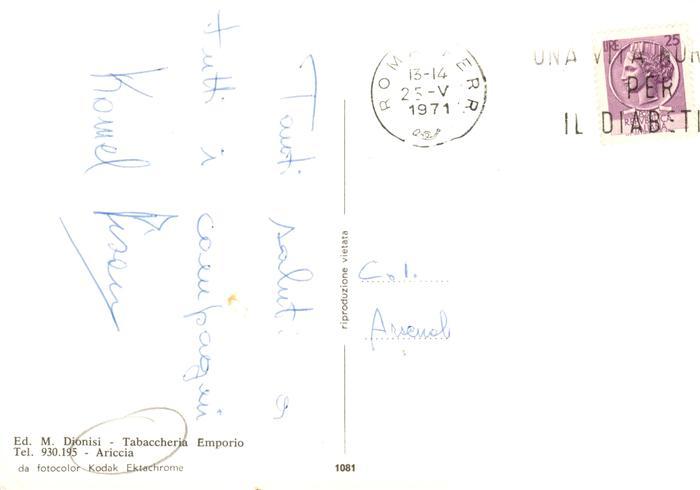 Tanti saluti a
tutti i
compagni
riproduzione vietata
ROMA FERR.
13-14
25-V
1971
UNA VITA
PER
IL DIABETI
LIRE 25
Col.
Arsenal
Ed. M. Dionisi - Tabaccheria Emporio
Tel. 930.195 - Ariccia
da fotocolor Kodak Ektachrome
1081